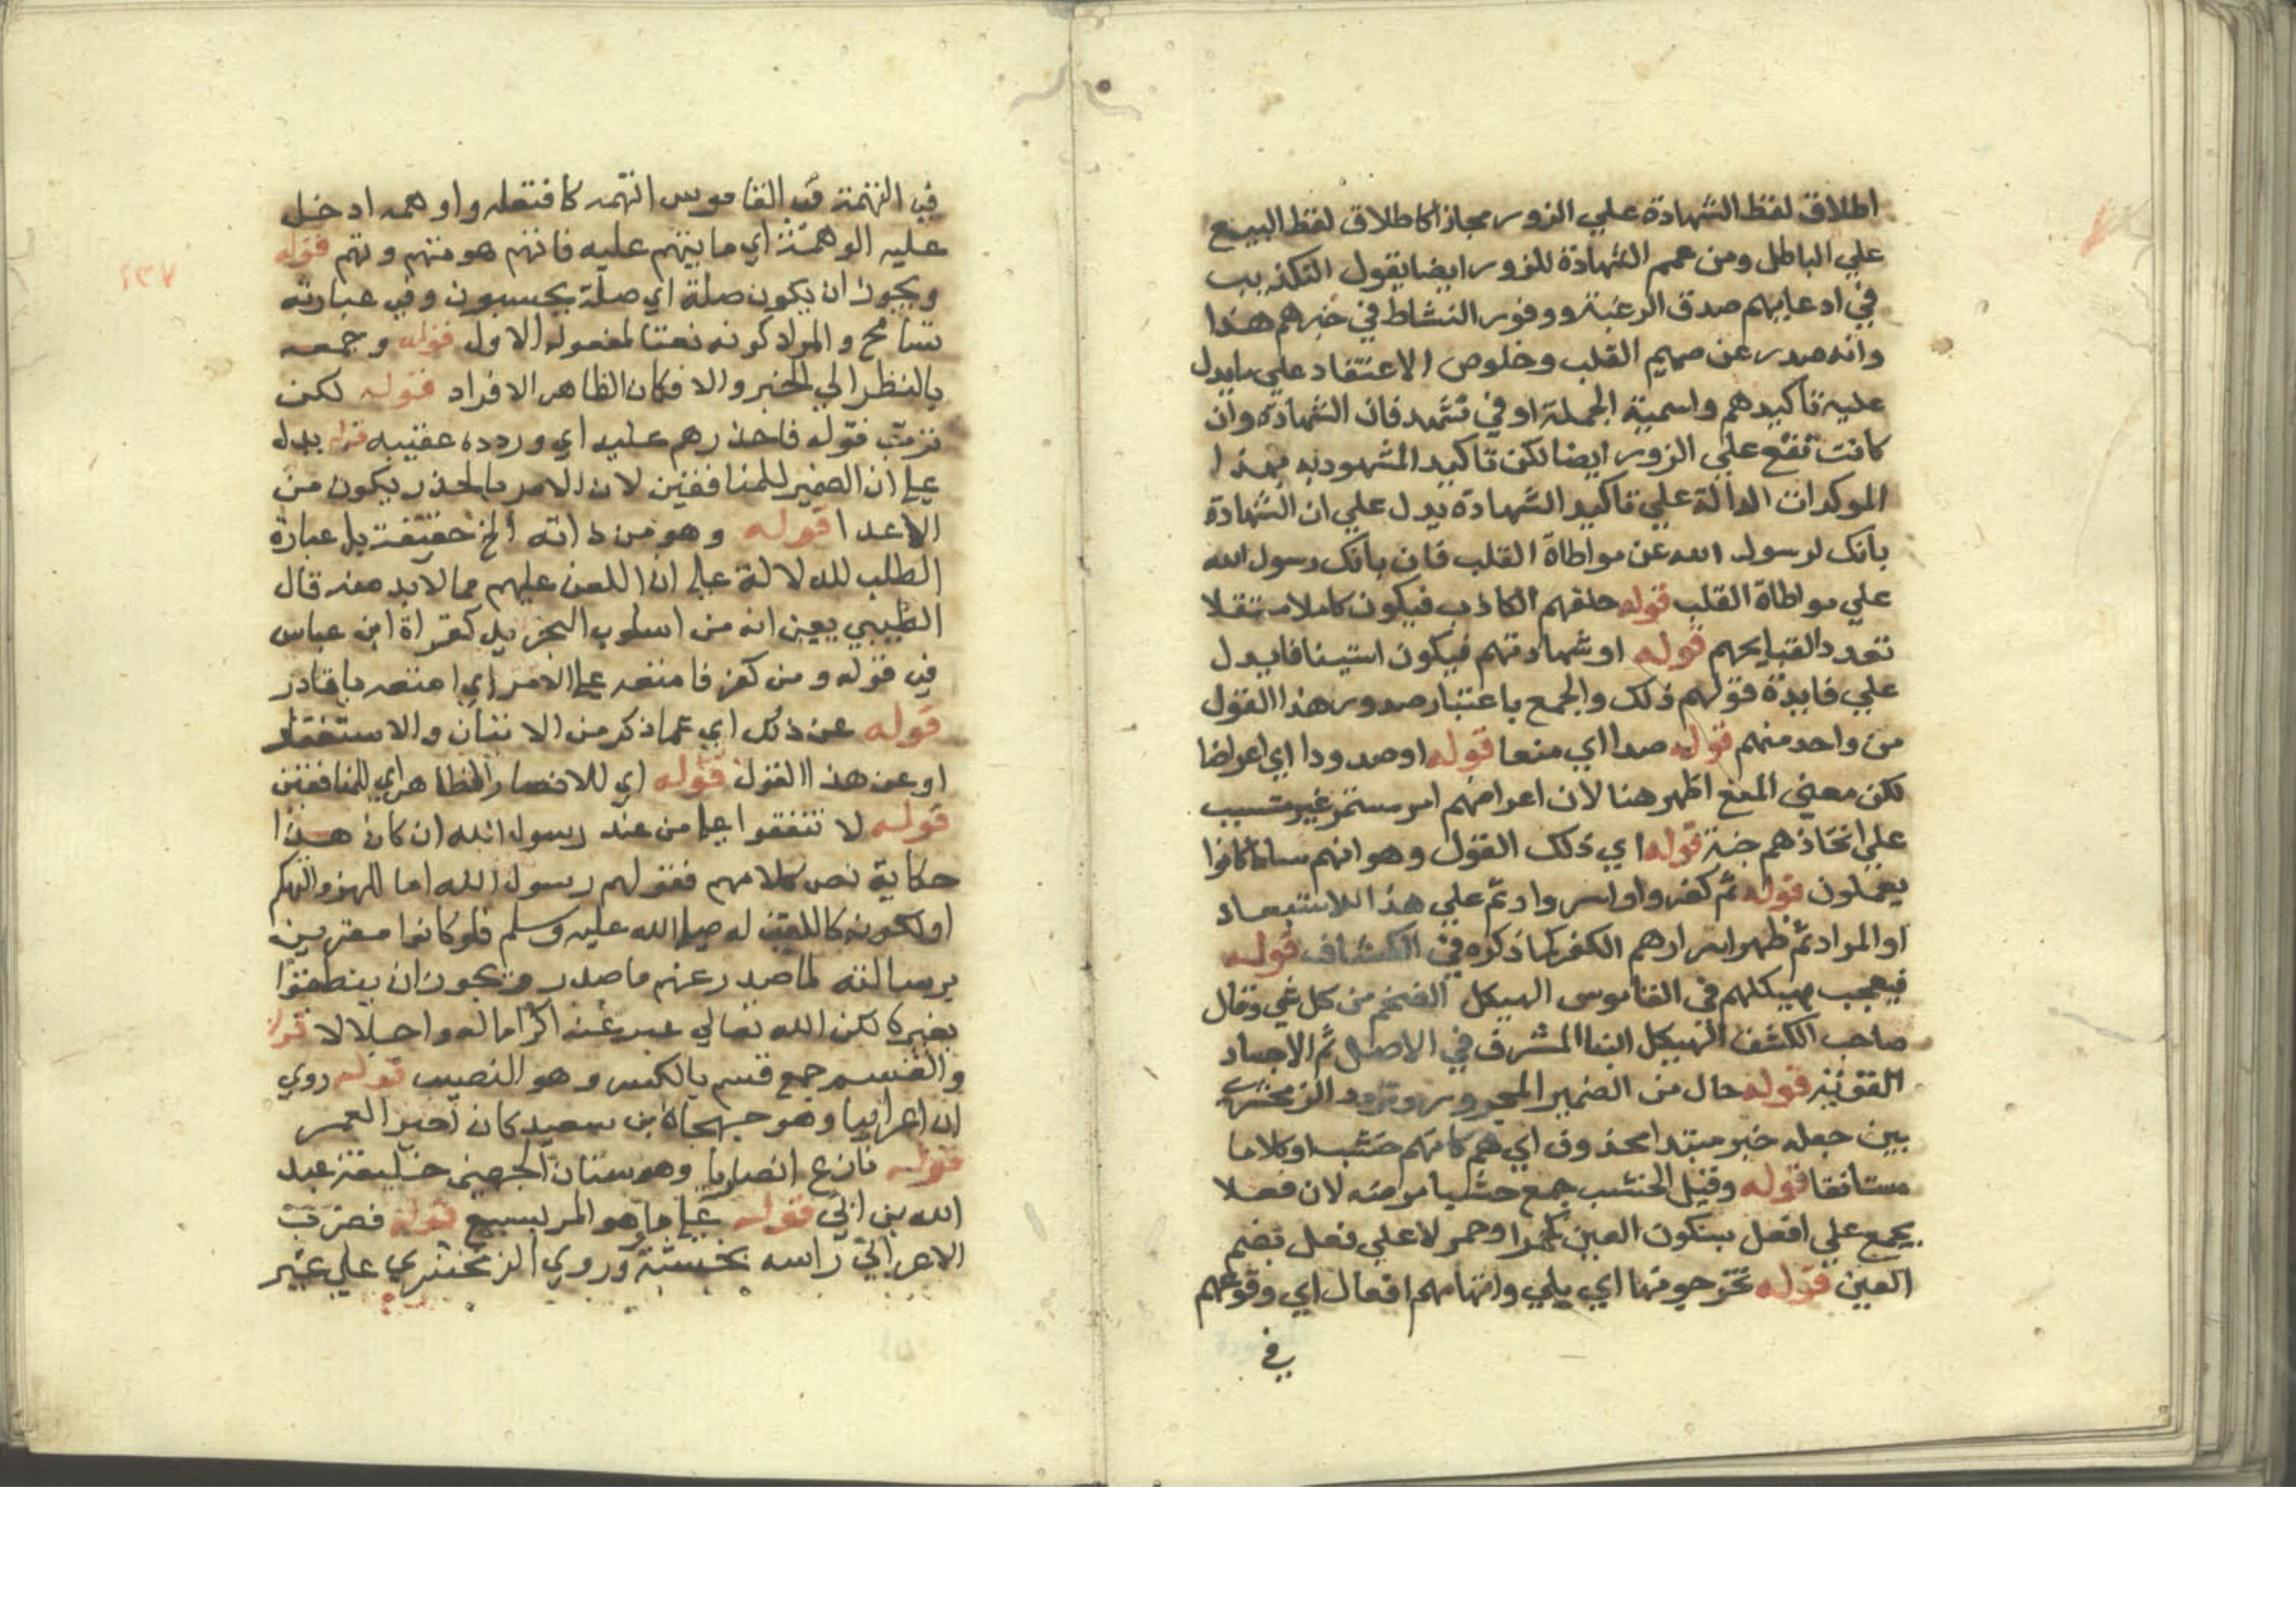 اطلاق لفظ الشهادة علي الزور مجازا كاطلاق لفظ البيع
علي الباطل ومن عمم الشهادة للزور ايضا يقول التكذيب
في ادعايهم صدق الرغبة ووفور النشاط في خبرهم هذا
وانه صدر عن صميم القلب وخلوص الاعتقاد علي ما يدل
عليه تاكيدهم واسمية الجملة او في نشهد فان الشهادة وان
كانت تقع علي الزور ايضا لكن تاكيد المشهود به بهذا
الموكدات الدالة علي تاكيد الشهادة يدل علي ان الشهادة
بانك لرسول الله عن مواطاة القلب فان بانك رسول الله
علي مواطاة القلب قوله حلفهم الكاذب فيكون كلاما مستقلا
تعدد القبايحهم قوله او شهادتهم فيكون استينافا يدل
علي فايدة قولهم ذلك والجمع باعتبار صدور هذا القول
من واحد منهم قوله صدا اي منعا قوله او صدودا اي اعراضا
لكن معني المنع اظهر هنا لان اعراضهم امر مستمر غير متسبب
علي اتخاذهم جنة قوله اي ذلك القول وهو انهم ساء ما كانوا
يعملون قوله ثم كفروا او اسروا وثم علي هذا للاستبعاد
او المراد ثم ظهر اسرارهم الكفر كما ذكره في الكشاف قوله
فيعجب بهيكلهم في القاموس الهيكل الضخم من كل شي وقال
صاحب الكشف الهيكل البنا المشرف في الاصل ثم الاجساد
القوية قوله حال من الضمير المجرور وتردد الزمخشري
بين جعله خبر مبتدا محذوف اي هم كانهم خشب او كلاما
مستانفا قوله وقيل الخشب جمع خشبا مر منه لان فعلا
يجمع علي افعل بسكون العين كحمرا وحمر لا علي فعل بضم
العين قوله تخرجو منها اي يلي واتهامهم افعال اي وقوعهم
في
في التهمة في القاموس اتهمه كافتعله واوهمه ادخل
عليه الوهمة اي ما يتهم عليه فاتهم هو متهم وتهم قوله
ويجوز ان يكون صلة اي صلة يحسبون وفي عبارته
تسامح والمراد كونه نعتا لمفعوله الاول قوله وجمعه
بالنظر الي الخبر والا فكان الظاهر الافراد قوله لكن
ترتب قوله فاحذرهم عليه اي وروده عقيبه قوله يدل
علي ان الضمير للمنافقين لان الامر بالحذر يكون من
الاعدا قوله وهو من ذاته الخ حقيقة بل عبارة
الطلب للدلالة علي ان اللعن عليهم مما لابد منه قال
الطيبي يعني انه من اسلوب التجريد كقراة ابن عباس
في قوله ومن كفر فامتعه علي الامر اي امتعه يا قادر
قوله عن ذلك اي عما ذكر من الاتيان والاستغفار
او عن هذا القول قوله اي للانصار الظاهر اي للمنافقين
قوله لا تنفقوا علي من عند رسول الله ان كان هذا
حكاية نص كلامهم فقولهم رسول الله اما للهزو والتهكم
او لكونه كاللقب له صلي الله عليه وسلم فلو كانوا مقرين
برسالته لما صدر عنهم ما صدر ويجوز ان ينطقوا
بغيره لكن الله تعالي عبر عنه اكراما له واجلالا قوله
والقسم جمع قسم بالكسر وهو النصيب قوله روي
ان اعرابيا وهو جهجاه بن سعيد كان اجير العمر
قوله نازع انصاريا وهو سنان الجهني حليف عبد
الله بن ابي قوله علي ما هو المريسيع قوله فضرب
الاعرابي راسه بخشبة وروي الزمخشري علي غير